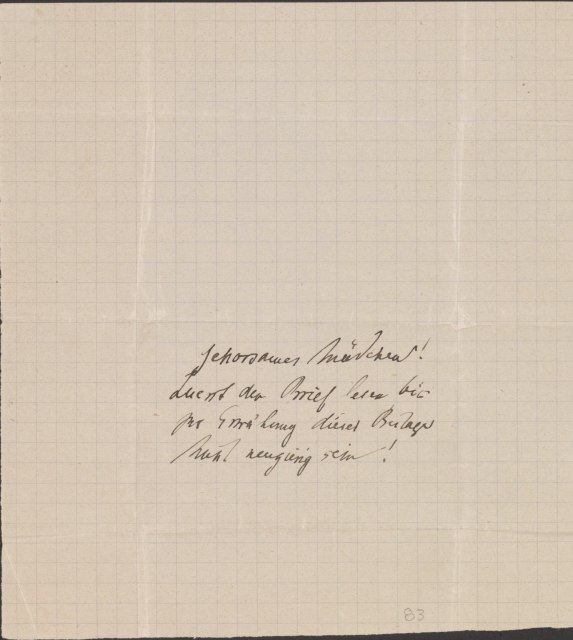 Gehorsames Mädchen!
Zuerst den Brief lesen bis
zur Erwähnung dieser Beilage
Nicht neugierig sein!
83